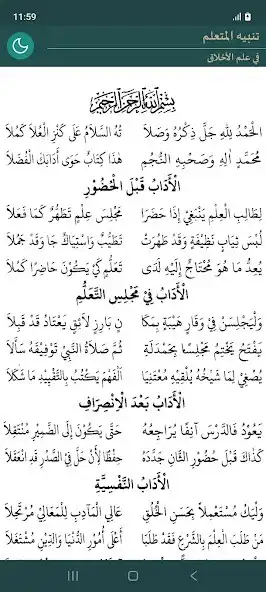 11:59
91%
تنبيه المتعلم
في علم الأخلاق
بِسْمِ اللهِ الرَّحْمٰنِ الرَّحِيْمِ
الْحَمْدُ لِلّٰهِ جَلَّ ذِكْرُهُ وَصَلَا تُهُ السَّلَامُ عَلَى كَنْزِ الْعُلَا كَمُلَا
مُحَمَّدٍ اٰلِهِ وَصَحْبِهِ النُّجُمِ هٰذَا كِتَابُ حَوَى أَدَابَكَ الْفُضَلَا
الْأَدَابُ قَبْلَ الْحُضُوْرِ
لِطَالِبِ الْعِلْمِ يَنْبَغِيْ إِذَا حَضَرَا مَجْلِسَ عِلْمٍ تَطَهُّرٌ كَمَا فَعَلَا
لُبْسُ ثِيَابٍ نَظِيْفَةٍ وَقَدْ طَهُرَتْ تَطَيُّبٌ وَاسْتِيَاكٌ جَا وَقَدْ جَمُلَا
يُعِدُّ مَا هُوَ مُحْتَاجٌ إِلَيْهِ لَدَى تَعَلُّمٍ كَيْ يَكُوْنَ حَاضِرًا كَمُلَا
الْأَدَابُ فِيْ مَجْلِسِ التَّعَلُّمِ
وَلْيَجْلِسَنْ فِيْ وَقَارٍ هَيْبَةٍ بِمَكَا نٍ بَارِزٍ لَائِقٍ يَعْتَادُ قَدْ قَبِلَا
يَفْتَحُ يَخْتِمُ مَجْلِسًا بِحَمْدَلَةِ ثُمَّ صَلَاةُ النَّبِيْ تَوْفِيْقَهُ سَأَلَا
يُصْغِيْ لِمَا شَيْخُهُ يُلْقِيْهِ مُعْتَنِيَا اَلْفَهْمَ يَكْتُبُ بِالتَّقْيِيْدِ مَا شَكَلَا
الْأَدَابُ بَعْدَ الْاِنْصِرَافِ
يَعُوْدُ فَالدَّرْسَ آنِفًا يُرَاجِعُهُ حَتَّى يَكُوْنَ إِلَى الضَّمِيْرِ مُنْتَقِلَا
كَذَاكَ قَبْلَ حُضُوْرِ الثَّانِ جَدَّدَهُ حِفْظًا لِأَنْ حَلَّ فِي الصَّدْرِ قَدِ انْعَقَلَا
الْأَدَابُ النَّفْسِيَّةِ
وَلْيَكُ مُسْتَعْمِلًا بِحَسَنِ الْخُلُقِ عَالِي الْمَآدِبِ لِلْمَعَالِيْ مُرْتَجِلَا
مَنْ طَلَبَ الْعِلْمَ بِالشَّرْعِ فَقَدْ طَلَبَا أَعْلَى أُمُوْرِ الدُّنْيَا وَالدِّيْنِ مُشْتَغَلَا